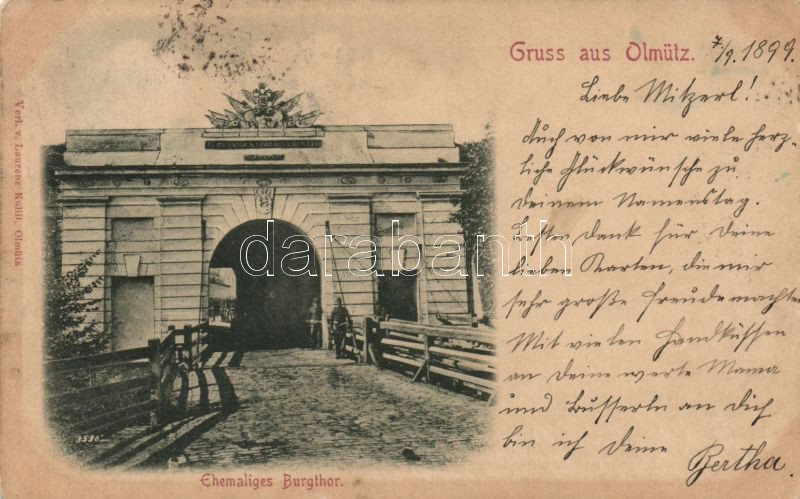 Gruss aus Olmütz. 7/9. 1899.
Liebe Mitzerl!
Auch von mir viele herz-
liche Glückwünsche zu
deinem Namenstag.
Besten Dank für Deine
lieben Karten, die mir
sehr große Freude machten
Mit vielen Handküssen
an Deine werte Mama
und Busserln an Dich
bin ich Deine
Bertha.
Verl. v. Laurenz Kullil, Olmütz
darabanth
3530
Ehemaliges Burgthor.